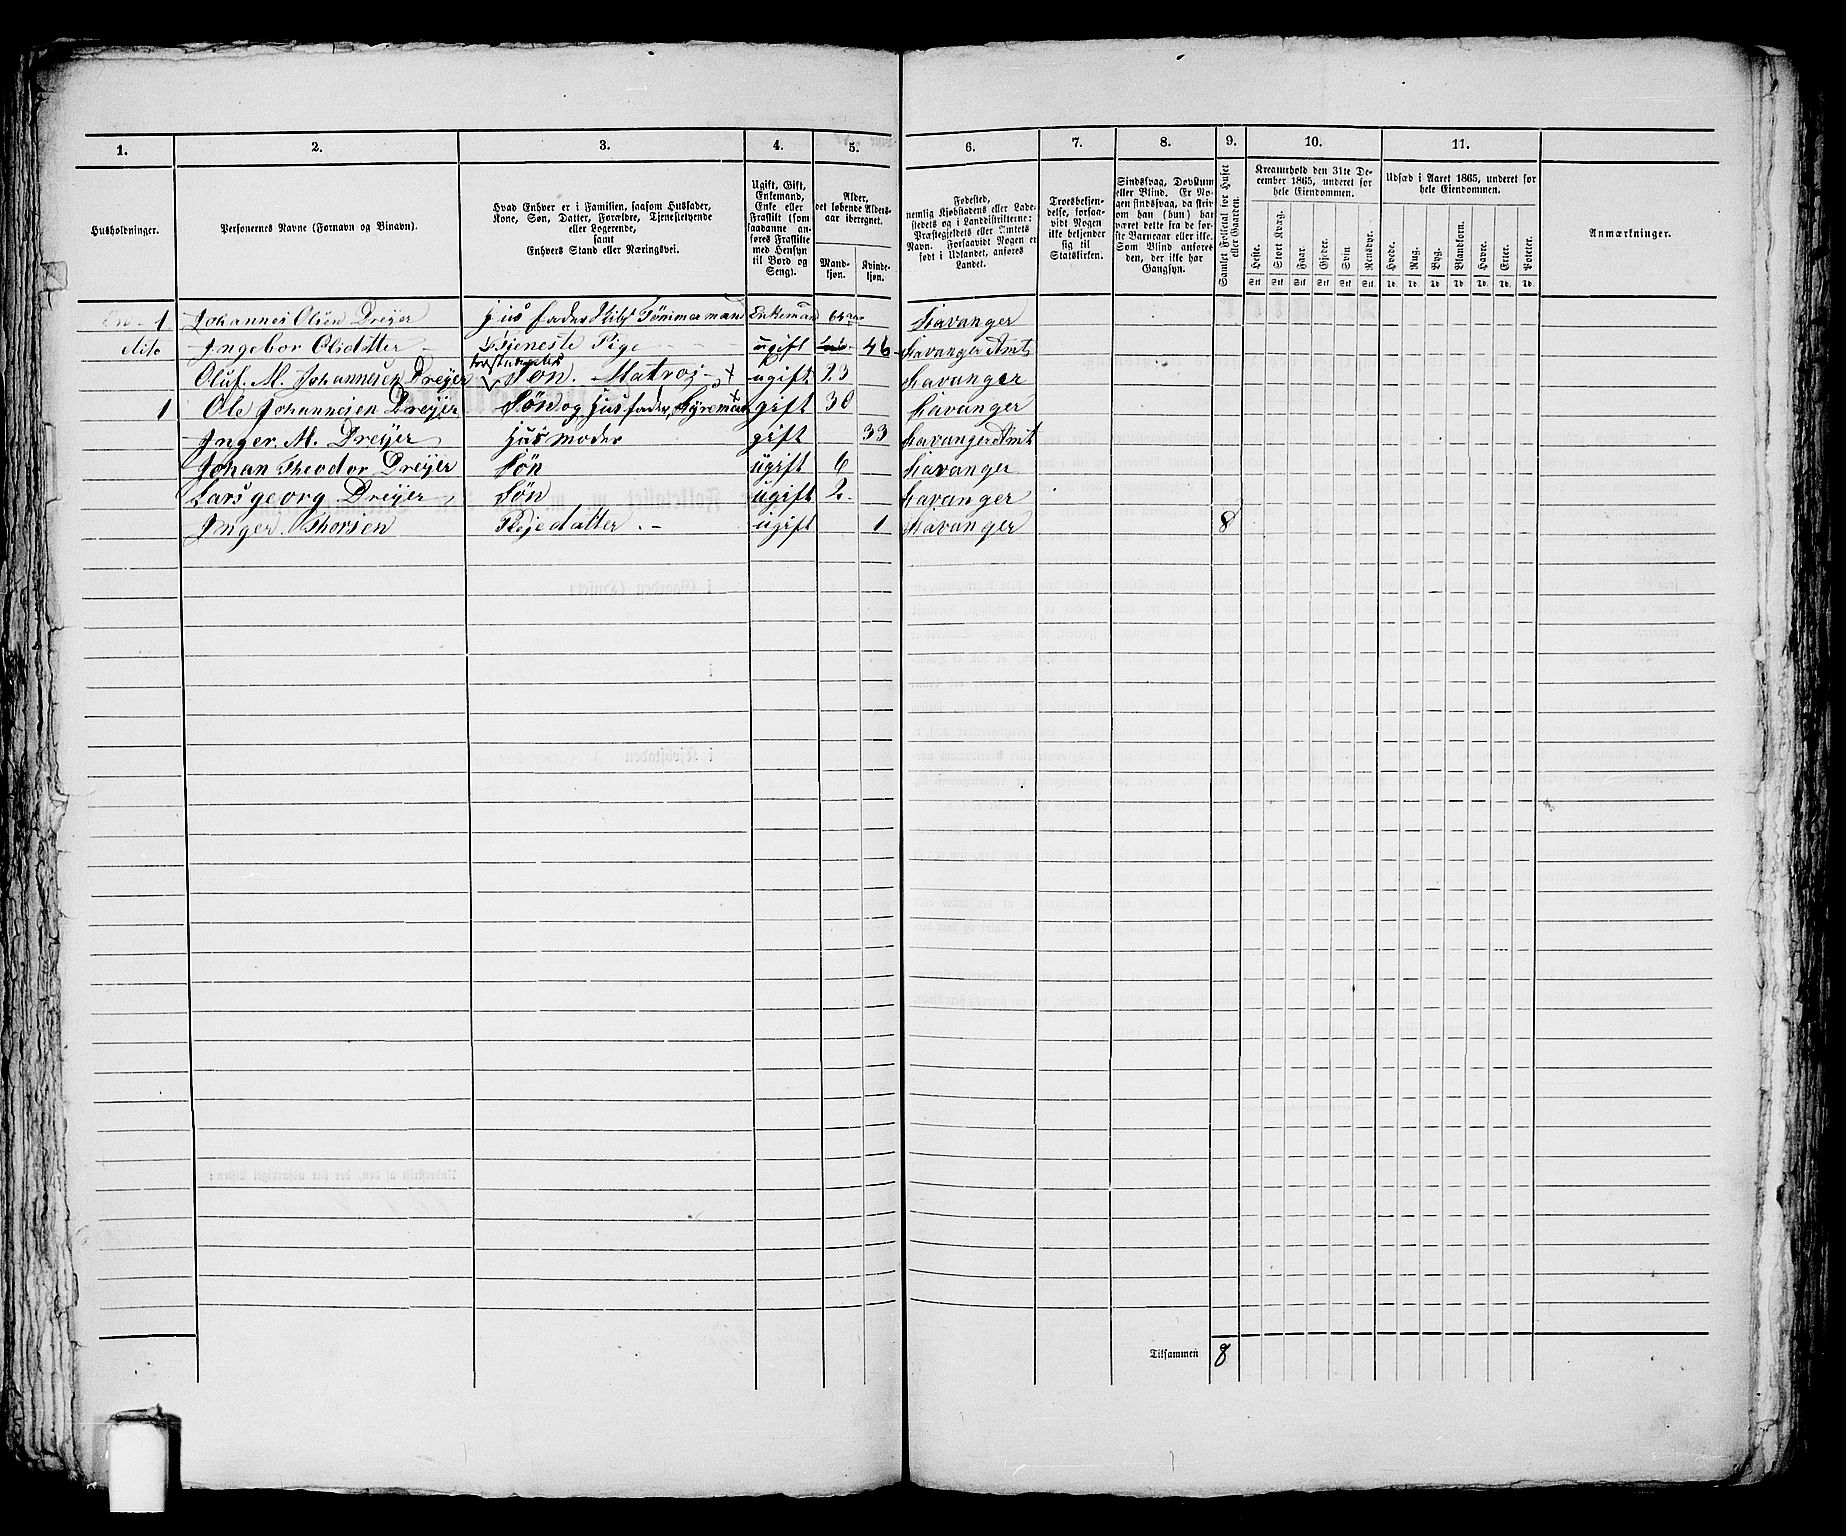 1. 2. 3. 4. 5. 6. 7. 8. 9. 10. 11.
Husholdninger.
Personernes Navne (Fornavn og Binavn).
Hvad Enhver er i Familien, saasom Husfader,
Kone, Søn, Datter, Forældre, Tjenestetyende
eller Logerende,
samt
Enhvers Stand eller Næringsvei.
Ugift, Gift,
Enkemand,
Enke eller
Fraskilt (som
saadanne an-
føres Fraskilte
med Hensyn
til Bord og
Seng).
Alder,
det løbende Alders-
aar iberegnet.
Mand-
kjøn.
Kvinde-
kjøn.
Fødested,
nemlig Kjøbstadens eller Lade-
stedets og i Landdistrikterne:
Præstegjeldets eller Amtets
Navn. Forsaavidt Nogen er
født i Udlandet, anføres
Landet.
Troesbekjen-
delse, forsaa-
vidt Nogen
ikke bekjender
sig til
Statskirken.
Sindssvag, Døvstum
eller Blind. Er No-
gen sindssvag, da skriv
om han (hun) har
været dette fra de før-
ste Barneaar eller ikke.
Som Blind anføres
den, der ikke har
Gangsyn.
Samlet Folketal for Huset
eller Gaarden.
Kreaturhold den 31te De-
cember 1865, underet for
hele Eiendommen.
Heste. Stort Kvæg. Faar. Gjeder. Svin Rensdyr.
Stk Stk Stk Stk Stk Stk
Udsæd i Aaret 1865, underet for
hele Eiendommen.
Hvede. Rug. Byg. Blandkorn. Havre. Erter. Poteter.
Td. Td. Td. Td. Td. Td. Td.
Anmærkninger.
1 Johannes Olsen Dreyer Husfader Skibs Tømmermand Enkemand Stavanger
dito Ingebor Olsdatter Tjeneste Pige ugift 46 Stavanger Amt
Oluf. M. Johannesen Dreyer Søn. Matros ugift 23 Stavanger
1 Ole Johannesen Dreyer Søn og Husfader, Styremand gift 30 Stavanger
Inger. M. Dreyer Husmoder gift 33 Stavanger Amt
Johan Theodor Dreyer Søn ugift 6 Stavanger
Lars georg Dreyer Søn ugift 2 Stavanger
Inger Thorsen Plejedatter ugift 1 Stavanger 8
Tilsammen 8